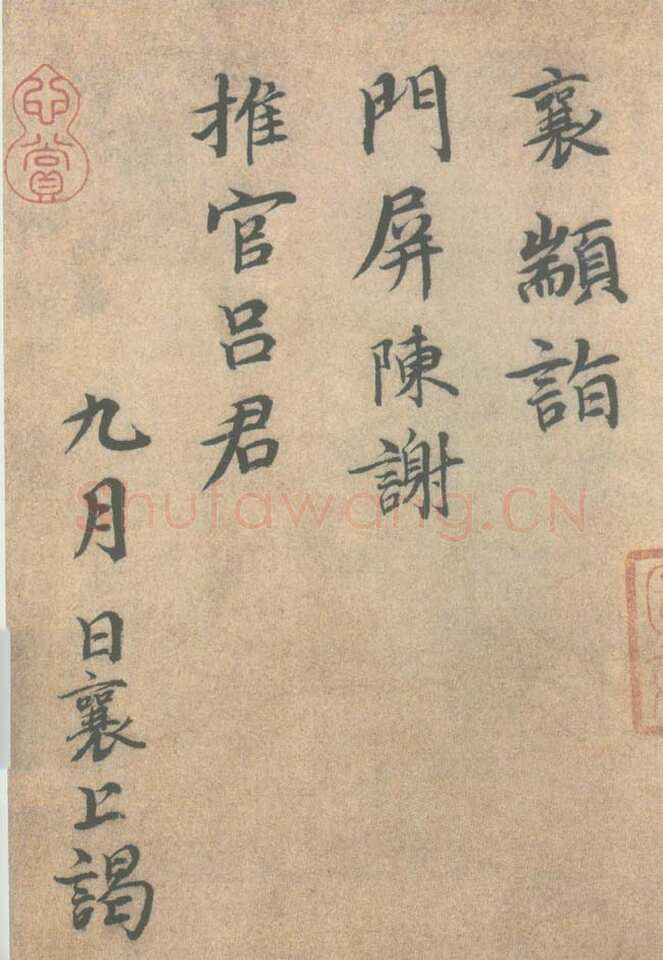 襄顓詣
門屏陳謝
推官呂君
九月 日襄上謁
Shufawang.CN